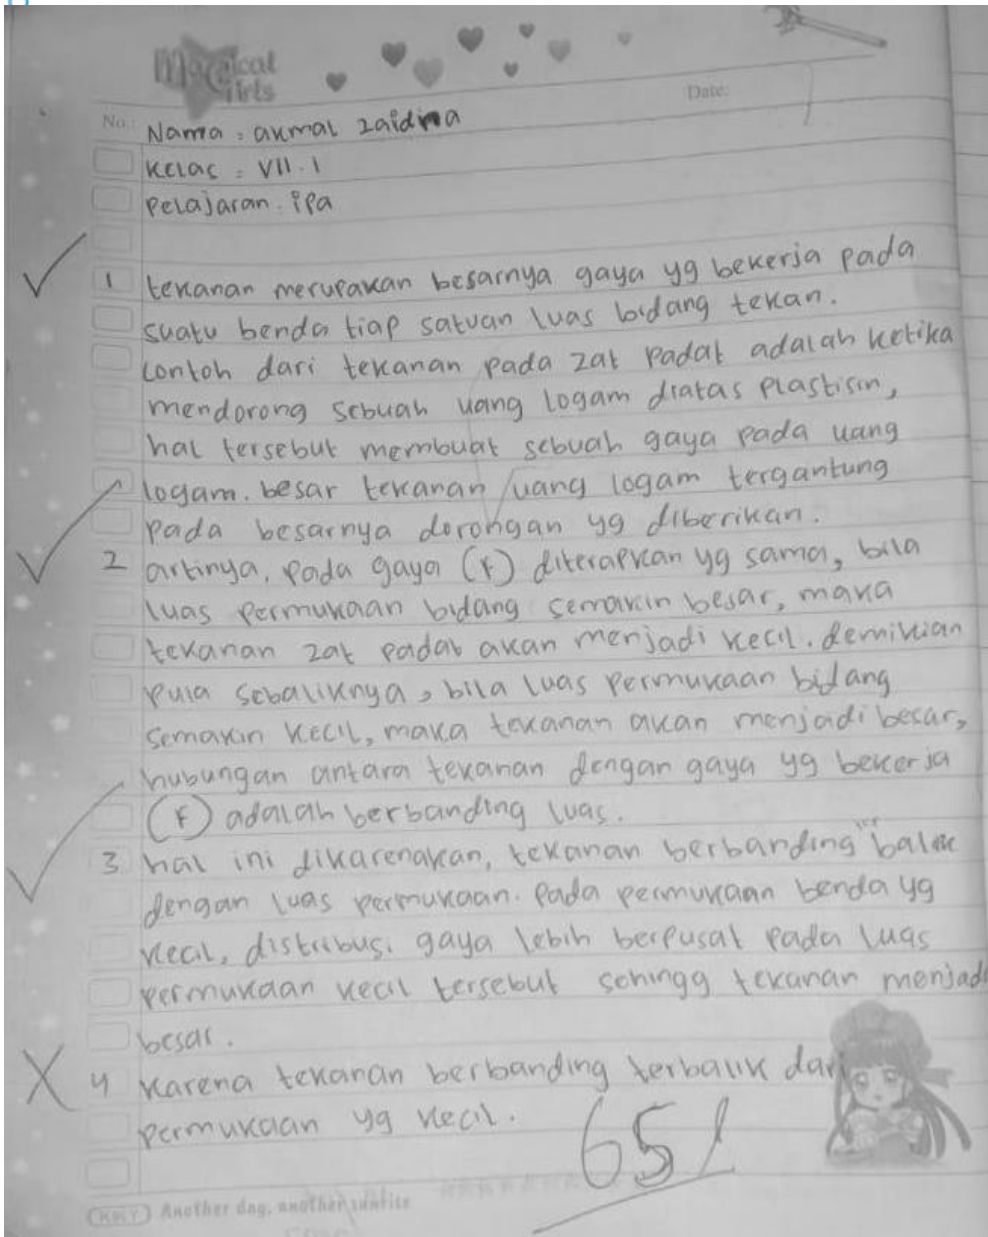 Magical
Girls
No.:
Date:
Nama : akmal zaidina
Kelas : VII.1
Pelajaran. ipa
1 tekanan merupakan besarnya gaya yg bekerja pada
suatu benda tiap satuan luas bidang tekan.
contoh dari tekanan pada zat padat adalah ketika
mendorong sebuah uang logam diatas plastisin,
hal tersebut membuat sebuah gaya pada uang
logam. besar tekanan uang logam tergantung
pada besarnya dorongan yg diberikan.
2 artinya, pada gaya (F) diterapkan yg sama, bila
luas permukaan bidang semakin besar, maka
tekanan zat padat akan menjadi kecil. demikian
pula sebaliknya, bila luas permukaan bidang
semakin kecil, maka tekanan akan menjadi besar,
hubungan antara tekanan dengan gaya yg bekerja
(F) adalah berbanding luas.
3 hal ini dikarenakan, tekanan berbanding balik
dengan luas permukaan. Pada permukaan benda yg
kecil, distribusi gaya lebih berpusat pada luas
permukaan kecil tersebut sehingg tekanan menjadi
besar.
4 karena tekanan berbanding terbalik dari
permukaan yg kecil.
65
Another day, another sunrise